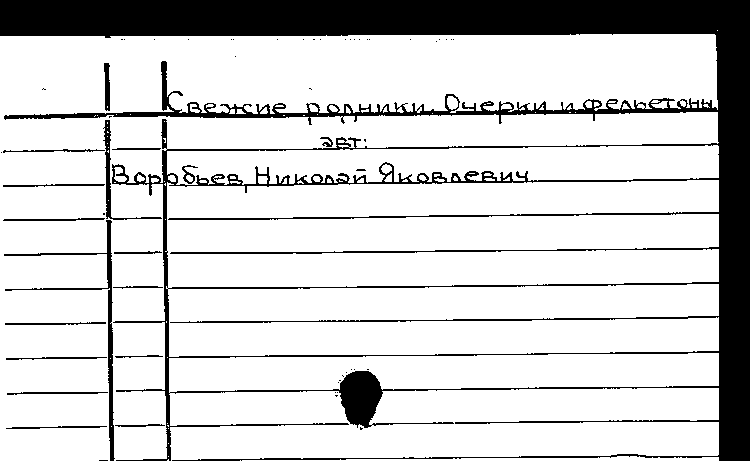 Свежие родники. Очерки и фельетоны
авт:
Воробьев, Николай Яковлевич